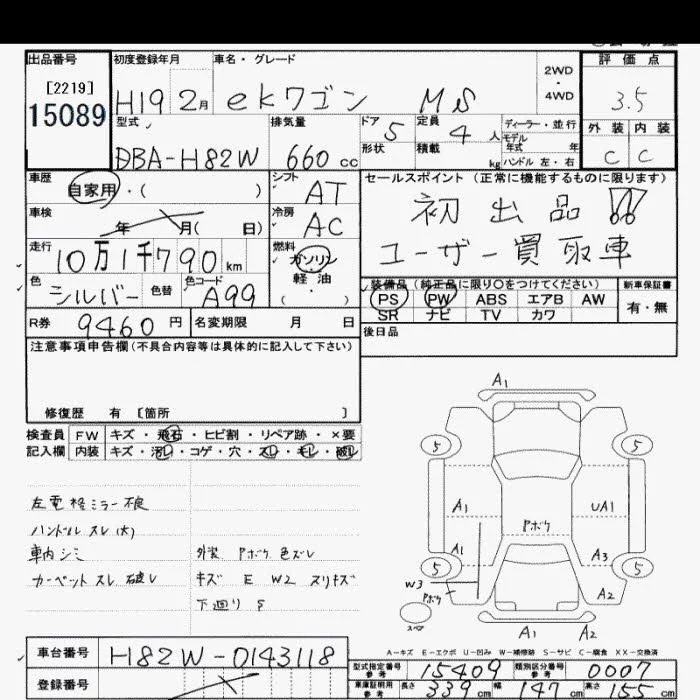 出品番号 初度登録年月 車名・グレード 評価点
[2219] 15089
H19 2月 ekワゴン MS 2WD・4WD 3.5
型式 排気量 ドア 定員 ディーラー・並行 外装 内装
DBA-H82W 660cc 5 4人 モデル年式 年 C C
形状 積載 kg ハンドル 左・右
車歴 自家用・( ) シフト AT セールスポイント(正常に機能するものに限ります)
車検 年 月( 日) 冷房 AC 初出品!!
走行 10万1千790km 燃料 ガソリン・軽油・( ) ユーザー買取車
色 シルバー 色替 色コード A99 装備品(純正品に限り〇をつけてください) 新車保証書
PS PW ABS エアB AW 有・無
SR ナビ TV カワ
R券 9460円 名変期限 月 日 後日品
注意事項申告欄(不具合内容等は具体的に記入して下さい)
修復歴 有 [箇所 ]
検査員 FW キズ・飛石・ヒビ割・リペア跡・×要
記入欄 内装 キズ・汚レ・コゲ・穴・スレ・モレ・破レ
左電格ミラー不良
ハンドルスレ(大)
車内シミ 外装 Pボケ 色ズレ
カーペットスレ 破レ キズ E W2 ヌリキズ
下廻り S
A1
5 5
A1 UA1
Pボケ
A1 A3
5 5
W3 Pボケ A2
スペア
A1 A2
A-キズ E-エクボ U-凹み W-補修跡 S-サビ C-腐食 XX-交換済
車台番号 H82W-0143118 型式指定番号 参考 15409 類別区分番号 参考 0007
登録番号 車庫証明用 参考 長さ 339cm 幅 147cm 高さ 155cm